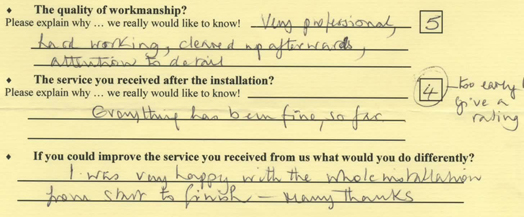 ♦ The quality of workmanship?
Please explain why ... we really would like to know! Very professional, 5
hard working, cleaned up afterwards,
attention to detail
♦ The service you received after the installation?
Please explain why ... we really would like to know! 4 too early
give a
rating
Everything has been fine, so far
♦ If you could improve the service you received from us what would you do differently?
I was very happy with the whole installation
from start to finish – Many thanks